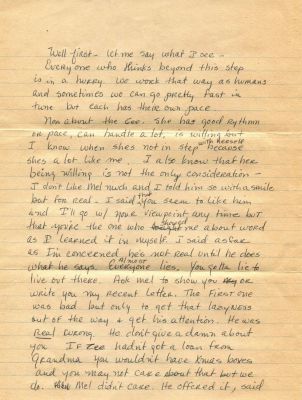 Well first - let me say what I see -
Everyone who thinks beyond this step
is in a hurry. We work that way as humans
and sometimes we can go pretty fast in
tune but each has their own pace.
Now about the Cee. She has good rythmn
or pace, can handle a lot, is willing but
I know when she's not in step with herself because
she's a lot like me. I also know that her
being willing is not the only consideration -
I don't like Mel much and I told him so with a smile
but for real. I said you seem to like him
and I'll go w/ your viewpoint any time but
that you're the one who taught me about word
as I learned it in myself. I said as far
as I'm concerned he's not real until he does
what he says. Almost Everyone lies. You gotta lie to
live out there. Ask mel to show you or
write you my recent letter. The first one
was bad but only to get that lazyness
out of the way & get his attention. He was
Real wrong. He don't give a damn about
you. If hadn't got a loan from
Grandma you wouldn't have Xmas boxes
and you may not care about that but we
do. Mel didn't care. He offered it, said